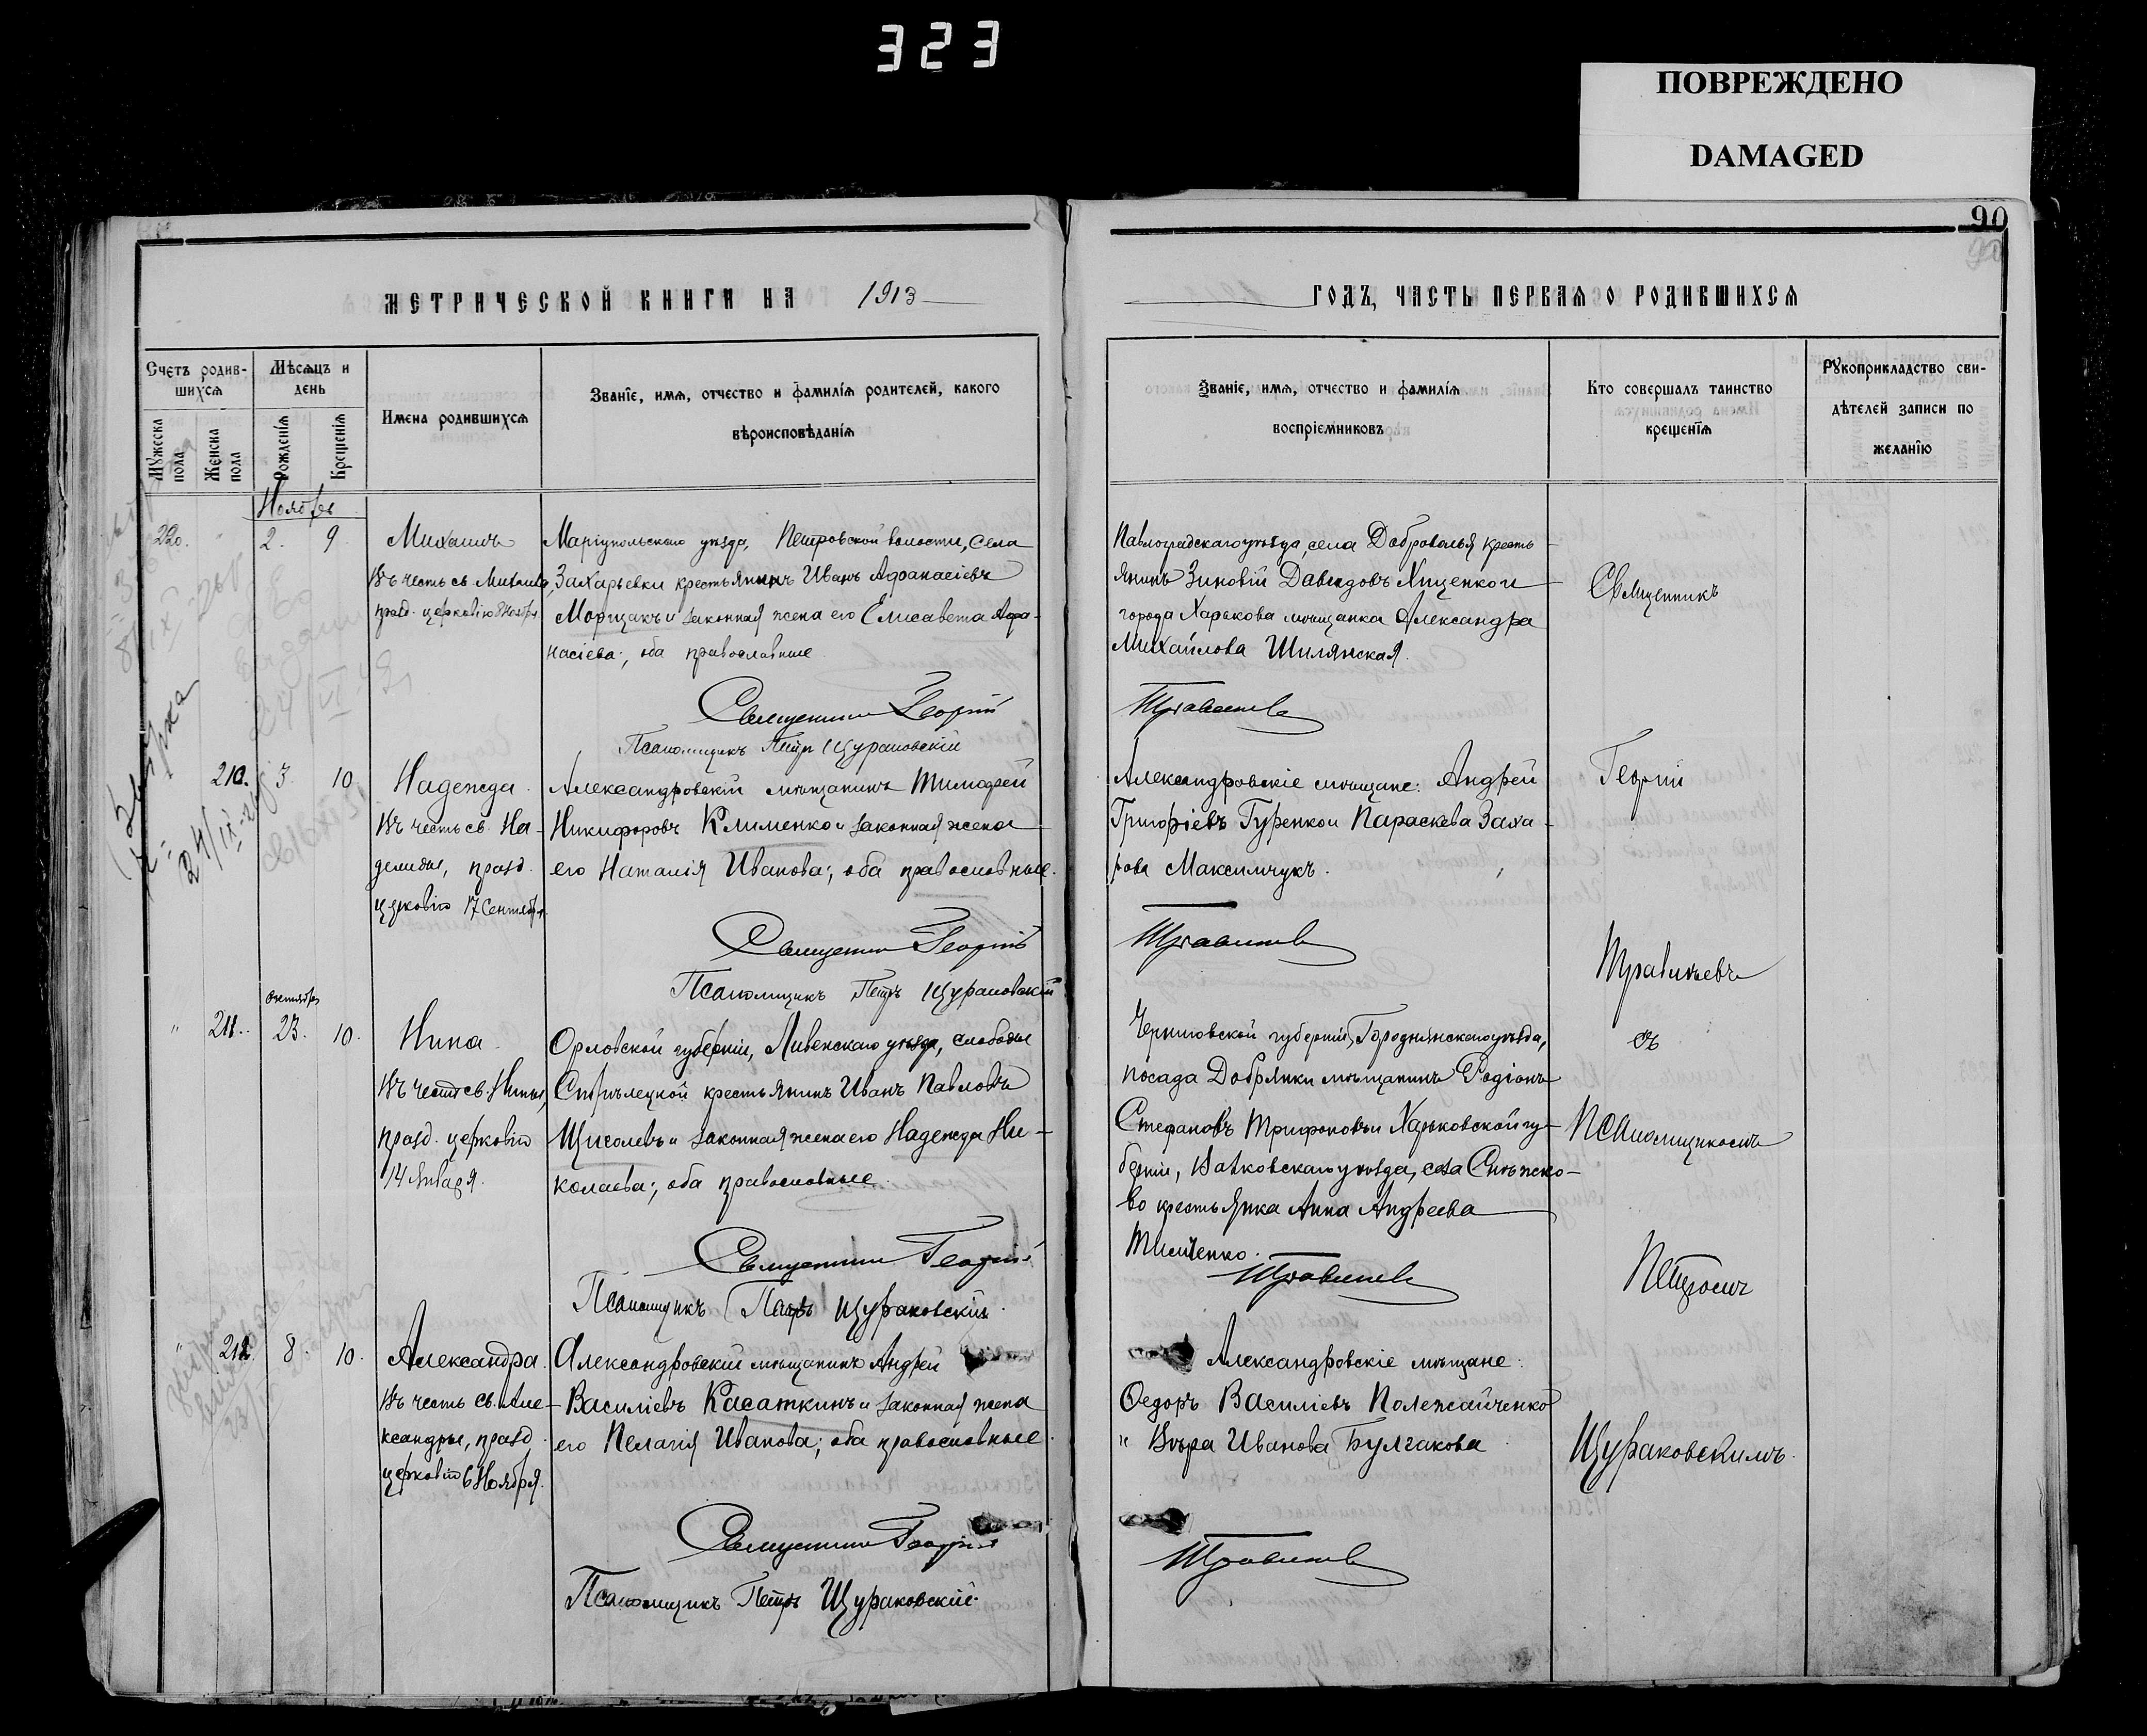 323
ПОВРЕЖДЕНО
DAMAGED
90
МЕТРИЧЕСКОЙ КНИГИ НА 1913
ГОДЪ, ЧАСТЬ ПЕРВАЯ О РОДИВШИХСЯ
Счетъ родив-
шихся
Мужеска
пола
Женска
пола
Мѣсяцъ и
день
Рожденія
Крещенія
Имена родившихся
Званіе, имя, отчество и фамилія родителей, какого
вѣроисповѣданія
Званіе, имя, отчество и фамилія
воспріемниковъ
Кто совершалъ таинство
крещенія
Рукоприкладство сви-
дѣтелей записи по
желанію
Ноябрь
220. 2. 9
Михаилъ
Въ честь св. Михаила,
празд. церковію 8 Ноября
Маріупольскаго уѣзда, Петровской волости, села
Захарьевки крестьянинъ Иванъ Афанасіевъ
и законная жена его Елисавета Афа-
насіева; оба православные
Священникъ Георгій
Псаломщикъ Петръ Щураковскій
Павлоградскаго уѣзда, села Доброволья кресть-
янинъ Зиновій Давидовъ и
города Харькова мѣщанка Александра
Михайлова Шилянская.
Травинъевъ
210. 3. 10
Надежда.
Въ честь св. На-
дежды, празд.
церковію 17 Сентября
Александровскій мѣщанинъ Тимофей
Никифоровъ Клименко и законная жена
его Наталія Иванова; оба православные.
Священникъ Георгій
Псаломщикъ Петръ Щураковскій
Александровскіе мѣщане: Андрей
Григоріевъ Гуренко и Параскева Заха-
рова Максимчукъ.
Травинъевъ
октября
" 211. 23. 10.
Нина.
Въ честь св. Нины,
празд. церковію
14 Января.
Орловской губерніи, Ливенскаго уѣзда, слободы
Стрѣлецкой крестьянинъ Иванъ Павловъ
и законная жена его Надежда Ни-
колаева; оба православные.
Священникъ Георгій
Псаломщикъ Петръ Щураковскій.
Черниговской губерніи, Городнянскаго уѣзда,
посада Добрянки мѣщанинъ Родіонъ
Стефановъ Трифоновъ и Харьковской гу-
берніи, Валковскаго уѣзда, села Снѣжко-
во крестьянка Анна Андреева
Тимченко.
Травинъевъ
" 212. 8. 10.
Александра.
Въ честь св. Але-
ксандры, празд.
церковію 6 Ноября.
Александровскій мѣщанинъ Андрей
Василіевъ Касаткинъ и законная жена
его Пелагія Иванова; оба православные.
Священникъ Георгій
Псаломщикъ Петръ Щураковскій.
Александровскіе мѣщане:
Федоръ Василіевъ Полежайченко
и Вѣра Иванова Булгакова
Травинъевъ
Священникъ
Георгій
Травинъевъ
съ
Псаломщикомъ
Петромъ
Щураковскимъ.
24/IX-26